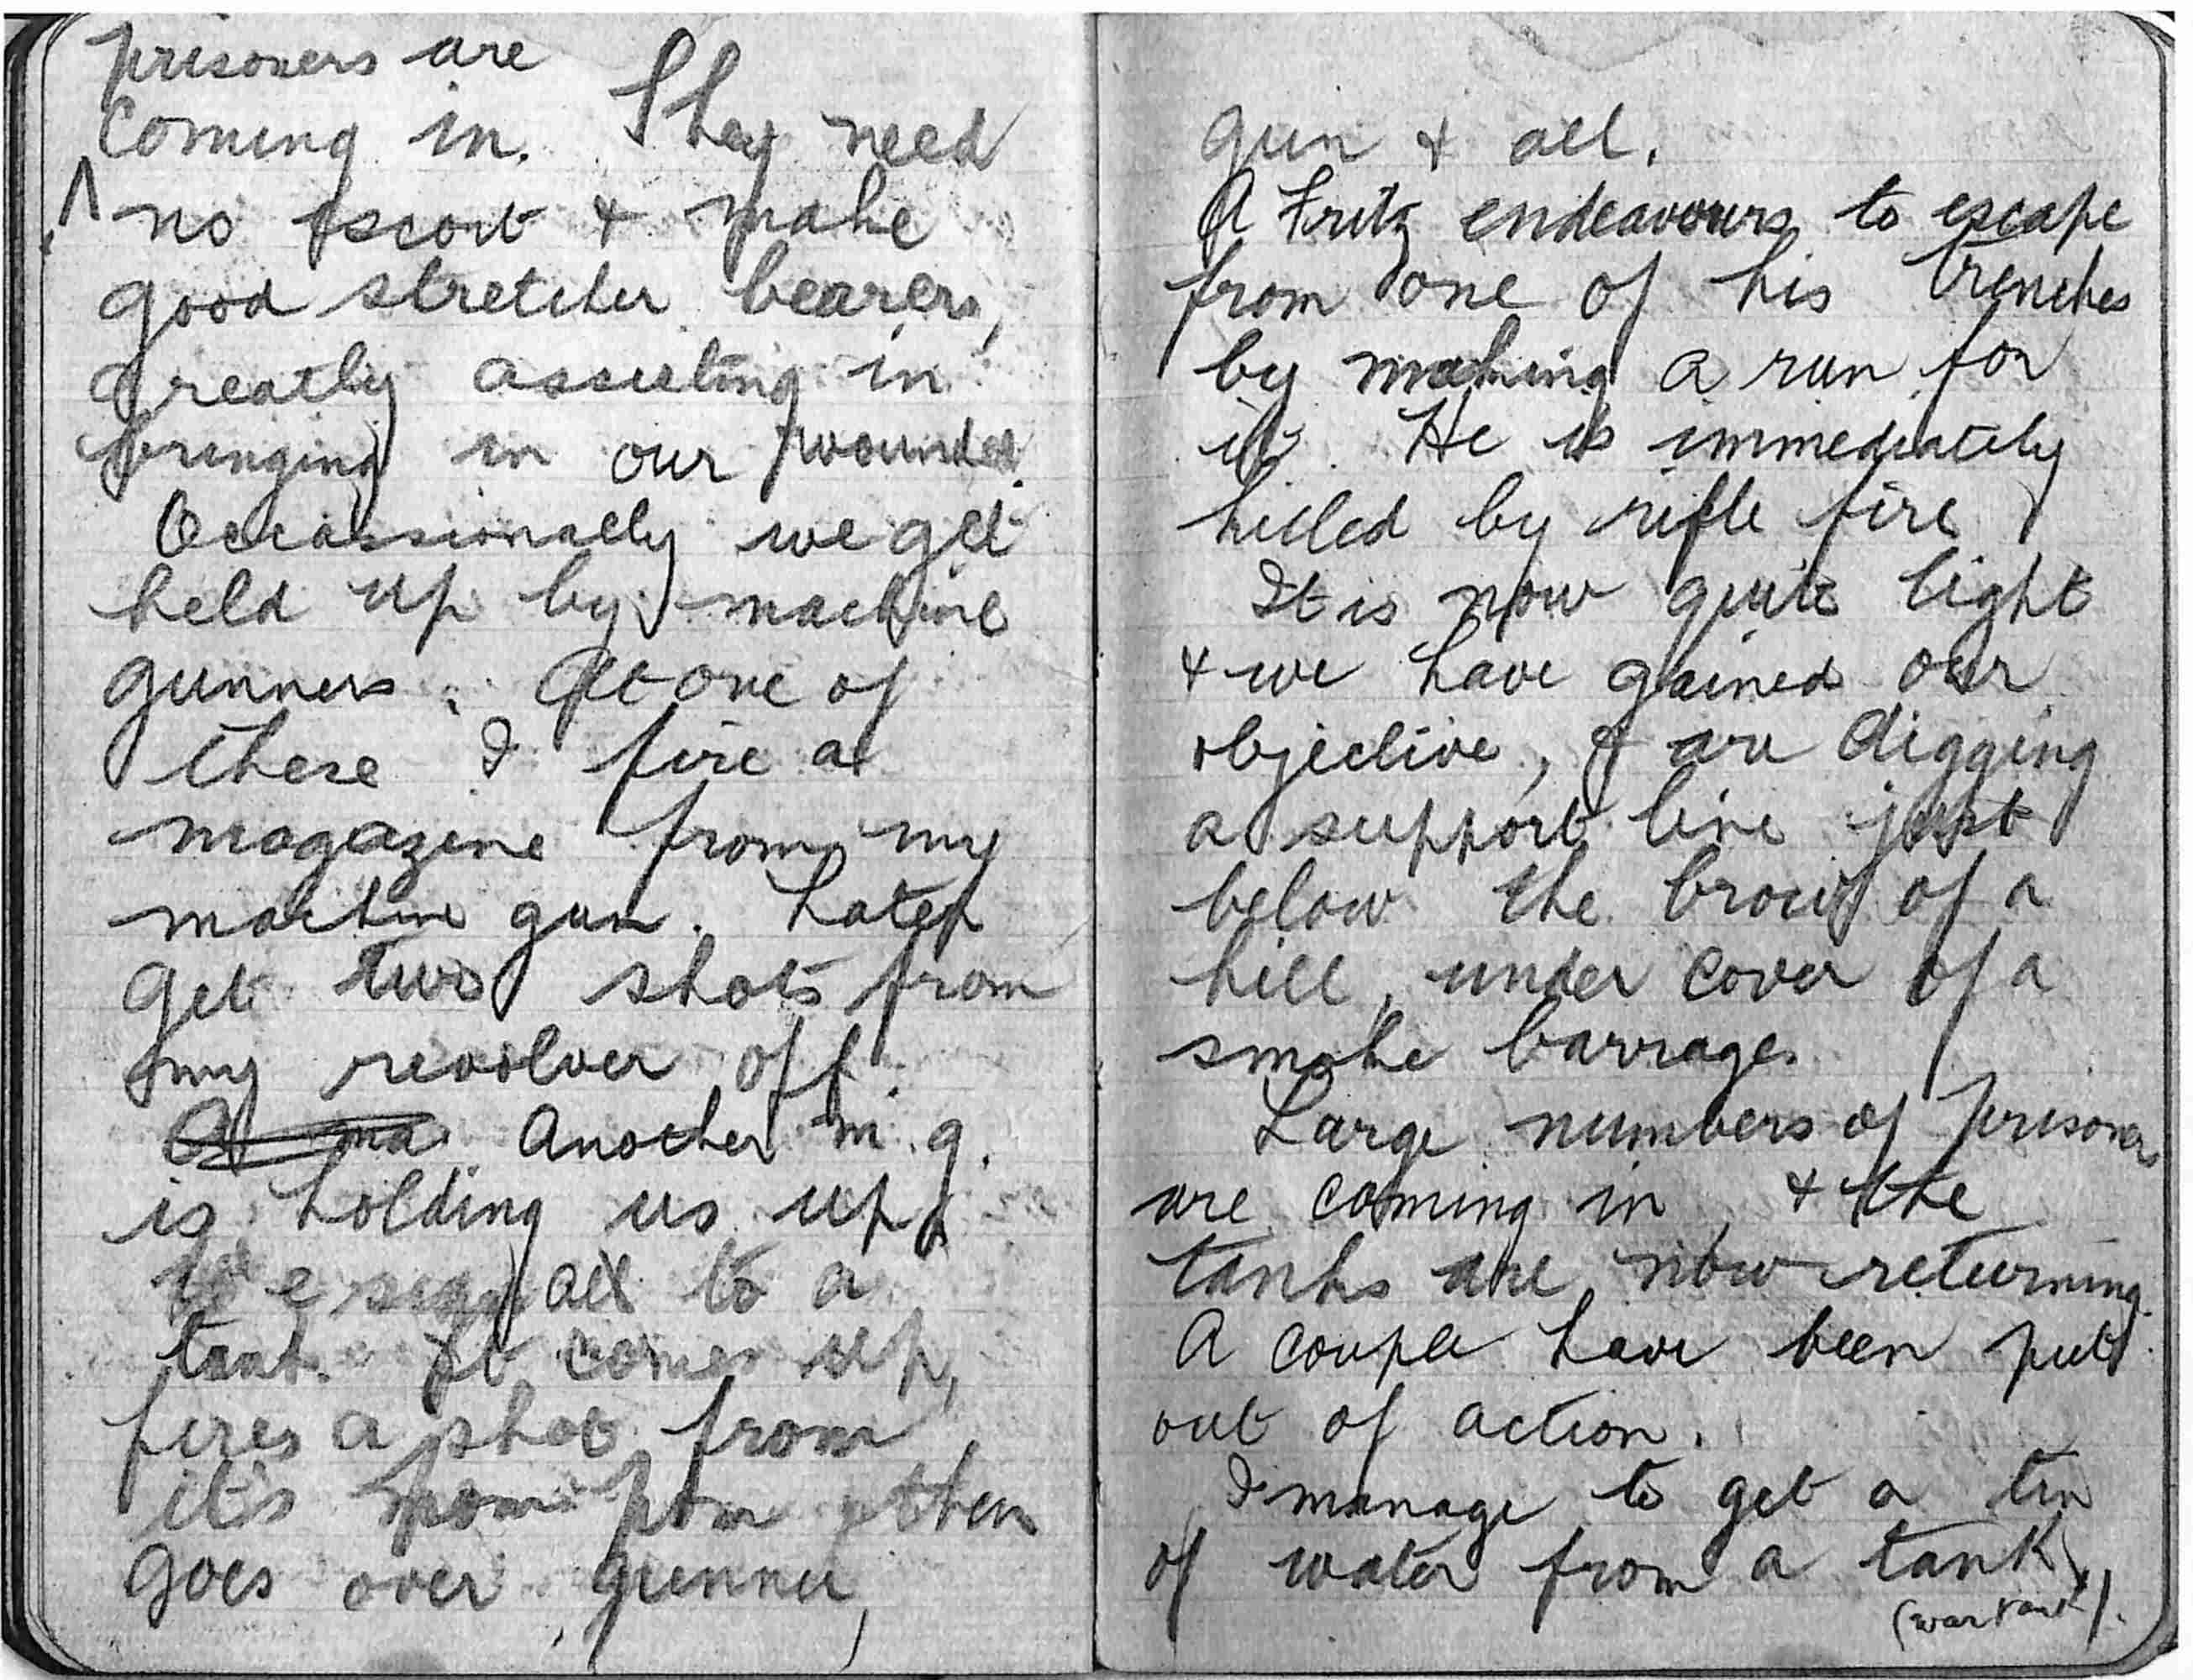 prisoners are
coming in. They need
^ no escort & make
good stretcher bearers,
greatly assisting in
bringing in our wounded.
Occassionally we get
held up by machine
gunners. At one of
these I fire a
magazine from my
machine gun. Later
get two shots from
my revolver off.
A ma Another m.g.
is holding us up,
We signal to a
tank. It comes up,
fires a shot from
it's pom pom & then
goes over gunner,
gun & all.
A Fritz endeavours to escape
from one of his trenches
by making a run for
it. He is immediately
killed by rifle fire
It is now quite light
& we have gained our
objective, & are digging
a support line just
below the brow of a
hill, under cover of a
smoke barrage.
Large numbers of prisoners
are coming in, & the
tanks are now returning.
A couple have been put
out of action.
I manage to get a tin
of water from a tank
(war tank).